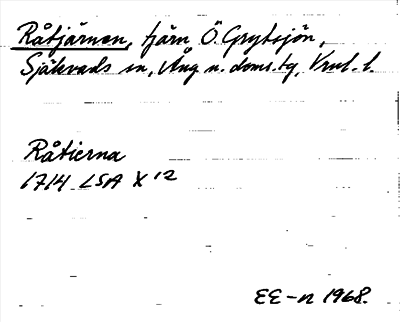 Råtjärnen, tjärn Ö. Grytsjön,
Själevads sn, Ång n. doms. tg, Vnl. l.
Råtierna
1714 LSA X 12
EE-n 1968.